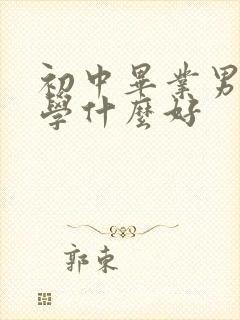 初中畢業男
學什麼好
郭東